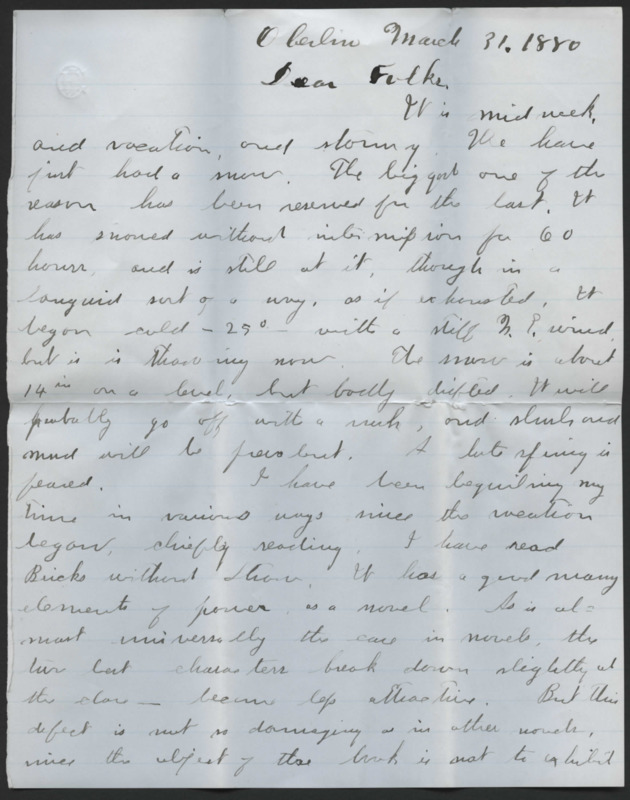 Oberlin March 31. 1880
Dear Folks.
It is mid week,
and vacation, and stormy. We have
just had a snow. The biggest one of the
season has been reserved for the last. It
has snowed without intermission for 60
hours, and is still at it, though in a
languid sort of a way, as if exhausted. It
began cold – 25° – with a stiff N. E. wind
but is is thawing now. The snow is about
14 in on a level, but badly drifted. It will
probably go off with a rush, and slush and
mud will be prevalent. A late spring is
feared. I have been beguiling my
time in various ways since the vacation
began, chiefly reading. I have read
Bricks without Straw. It has a good many
elements of power, as a novel. As is al=
most universally the case in novels, the
two best characters break down slightly at
the close — become less attractive. But this
defect is not so damaging as in other novels,
since the object of the book is not to exhibit